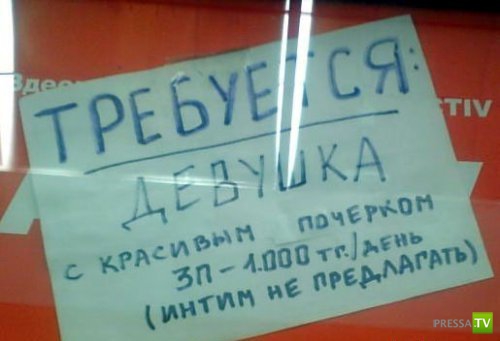 Здесь
ТРЕБУЕТСЯ:
TIV
ДЕВУШКА
С КРАСИВЫМ ПОЧЕРКОМ
ЗП - 1.000 тг./ДЕНЬ
(ИНТИМ НЕ ПРЕДЛАГАТЬ)
PRESSA.TV